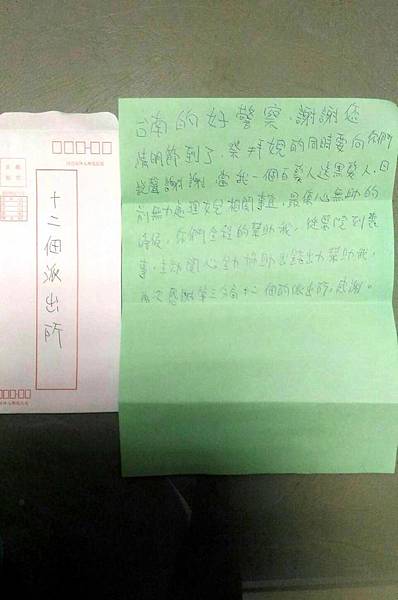 十二個派出所
台南的好警察,謝謝您
清明節到了,祭拜的同時要向你們
說聲謝謝,當我一個白髮人送黑髮人,目
前無力處理女兒相關事宜,最傷心無助的
時候,你們全程的幫助我,從案發到喪
事,主動關心全力協助出錢出力幫助我,
再次感謝第三分局十二個的派出所,感謝。